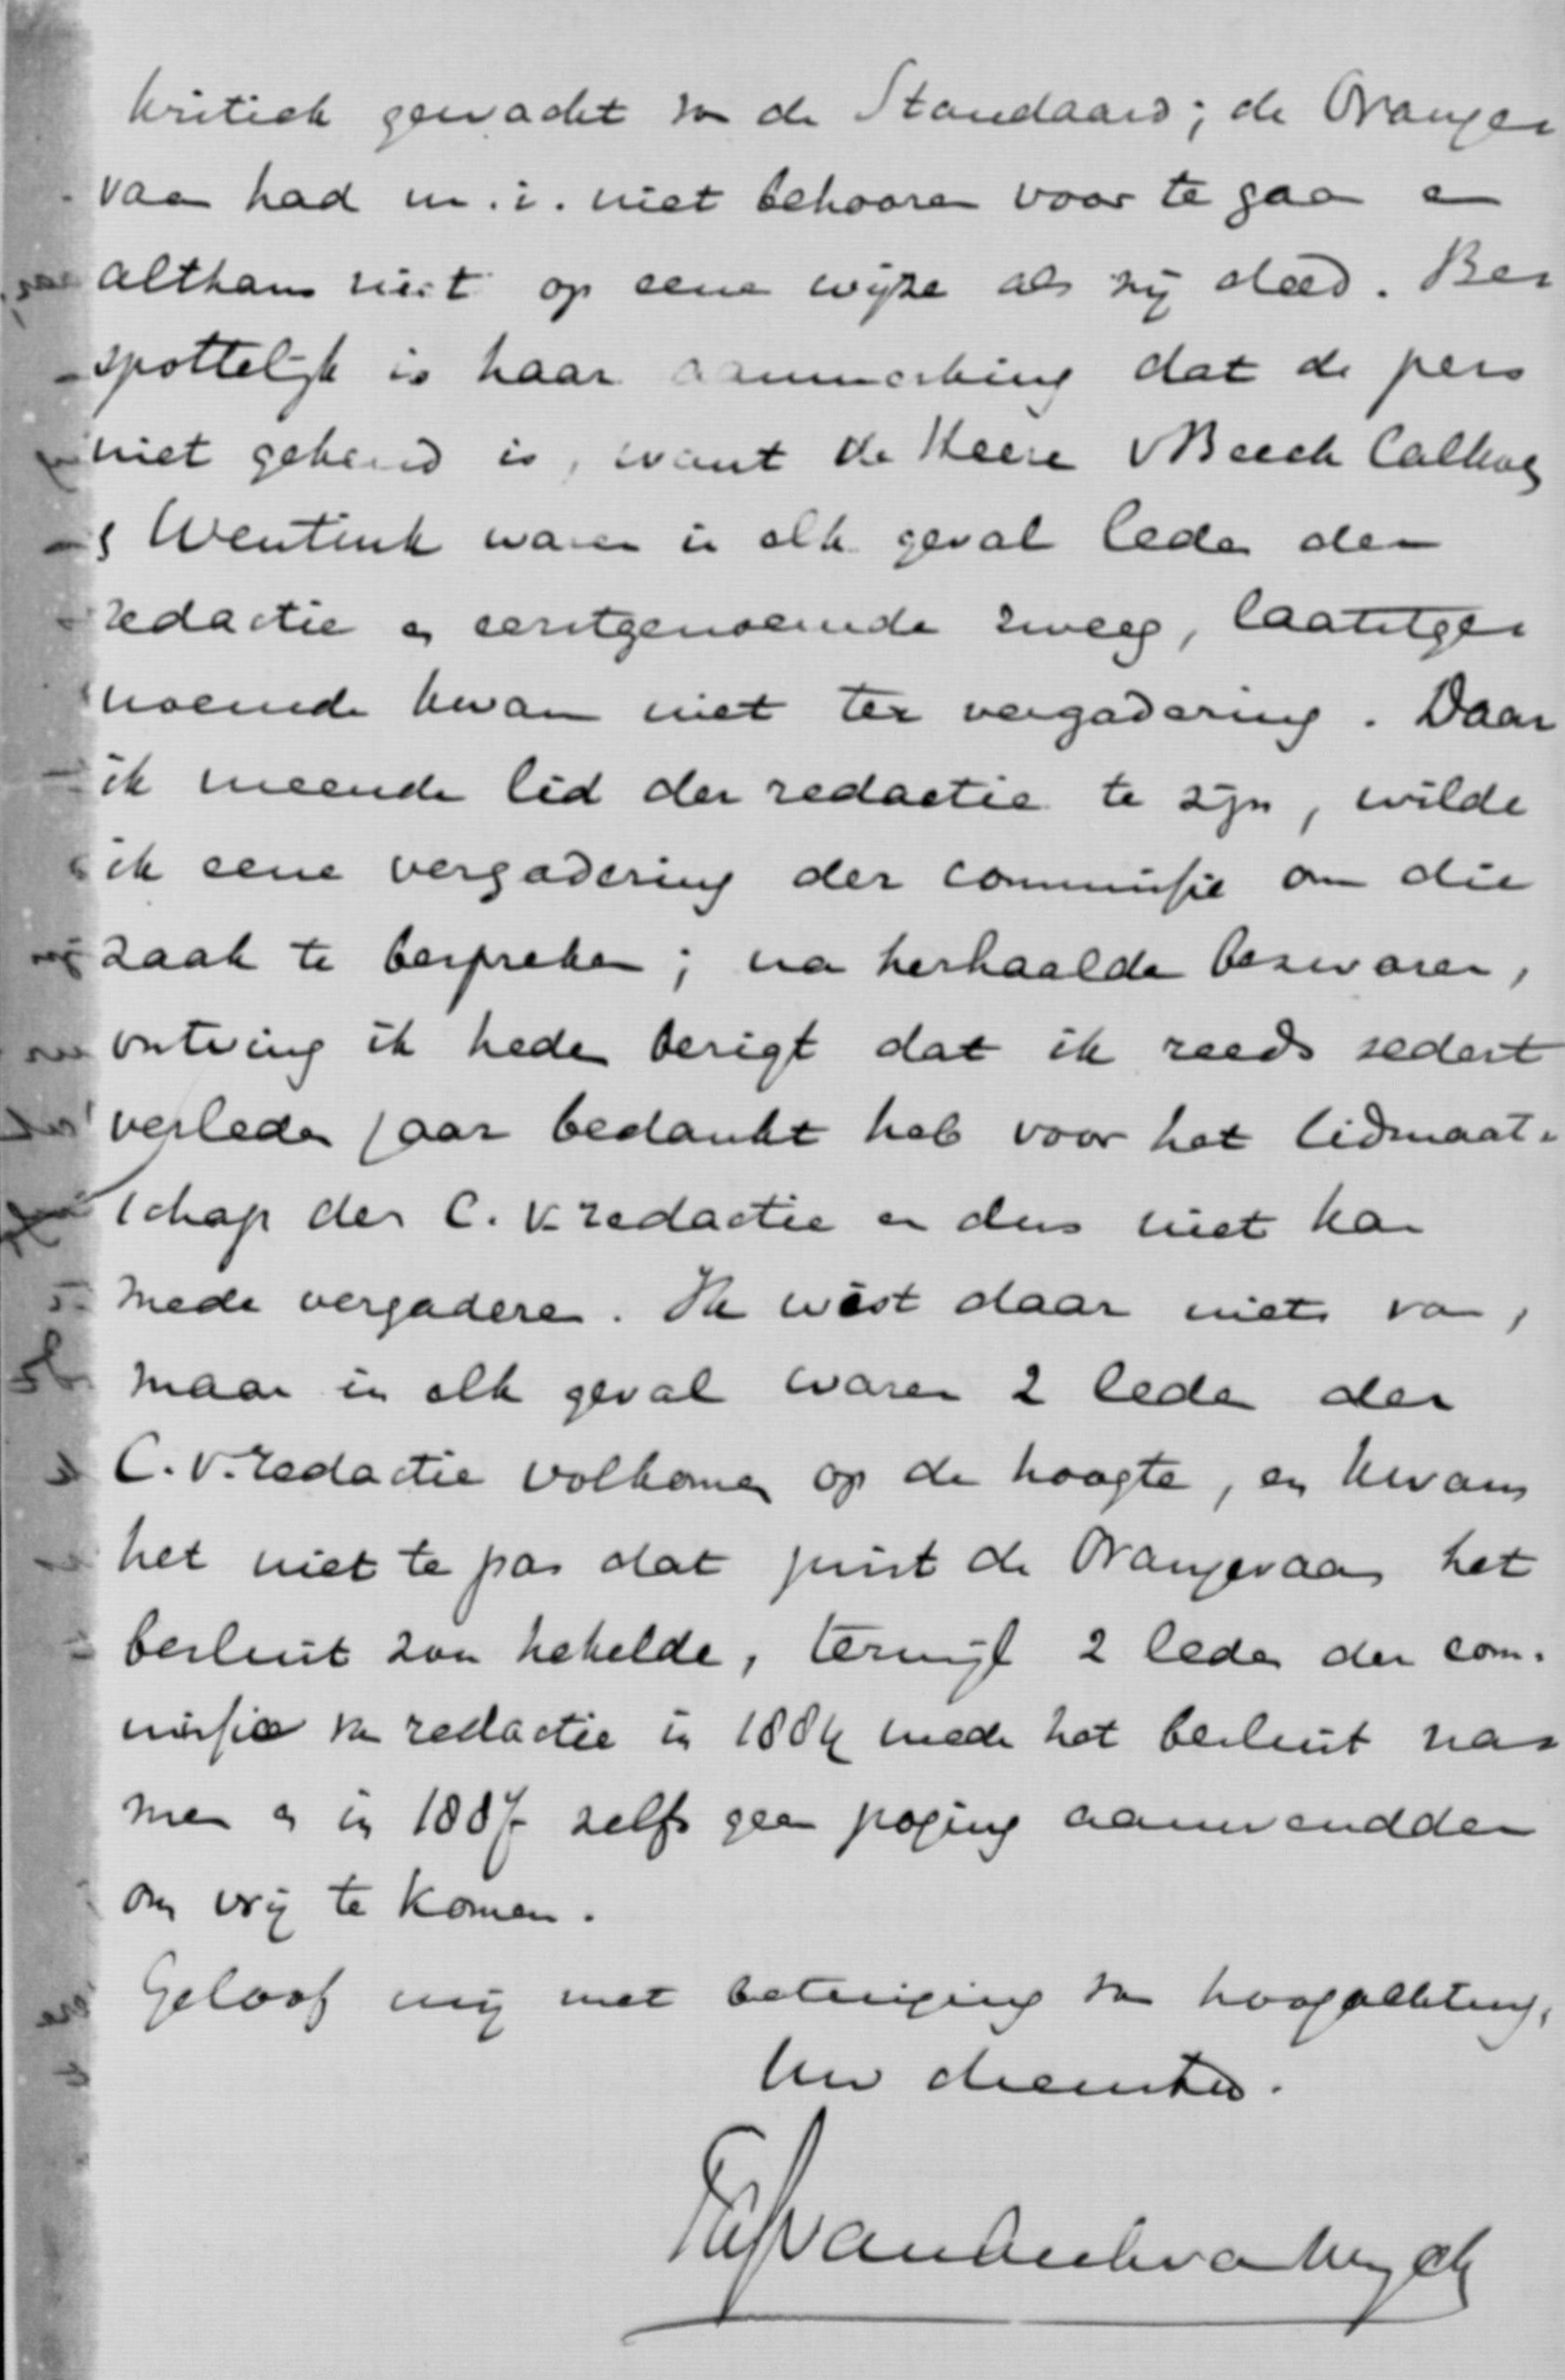 kritiek gewacht van de Standaard; de Oranje-
vaan had m.i. niet behooren voor te gaan en
althans niet op eene wijze als zij deed. Be-
spottelijk is haar aanmerking dat de pers
niet gekend is, want de Heere v Beeck Calkoen
& Wentink waren in elk geval leden der
redactie en eerstgenoemde zweeg, laatstge-
noemde kwam niet ter vergadering. Daar
ik meende lid der redactie te zijn, wilde
ik eene vergadering der commissie om die
zaak te bespreken; na herhaalde bezwaren,
ontving ik heden berigt dat ik reeds sedert
verleden jaar bedankt heb voor het lidmaat-
schap der C.v.redactie en dus niet kan
mede vergaderen. Ik wist daar niets van,
maar in elk geval waren 2 leden der
C.v.redactie volkomen op de hoogte, en kwam
het niet te pas dat juist de Oranjevaan het
besluit zou hekelde, terwijl 2 leden der com-
missie van redactie in 1884 mede het besluit na-
men en in 1887 zelfs geen poging aanwendden
om vrij te komen.
Geloof mij met betuiging van hoogachting,
Uw dienstw.